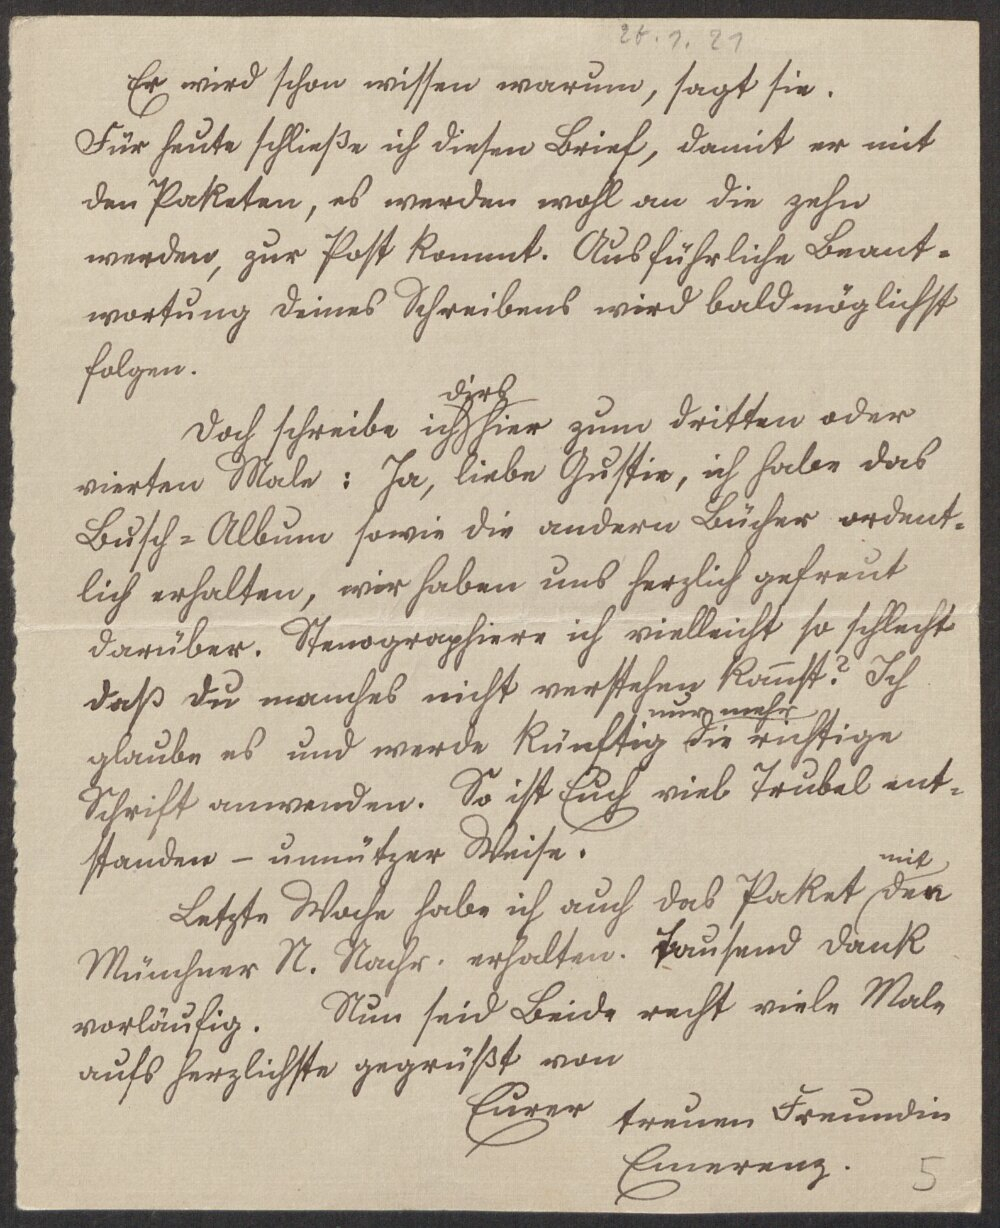 26.1.21
Er wird schon wissen warum, sagt sie.
Für heute schließe ich diesen Brief, damit er mit
den Paketen, es werden wohl an die zehn
werden, zur Post kommt. Ausführliche Beant-
wortung deines Schreibens wird baldmöglichst
folgen.
dirs
Doch schreibe ich hier zum dritten oder
vierten Male: Ja, liebe Gustie, ich habe das
Busch-Album sowie die andern Bücher ordent-
lich erhalten, wir haben uns herzlich gefreut
darüber. Stenographiere ich vielleicht so schlecht
daß du manches nicht verstehen kannst? Ich
nur mehr
glaube es und werde künftig die richtige
Schrift anwenden. So ist Euch viel Trubel ent-
standen – unnützer Weise.
mit
Letzte Woche habe ich auch das Paket den
Münchner N. Nachr. erhalten. Tausend Dank
vorläufig. Nun seid Beide recht viele Male
aufs herzlichste gegrüßt von
Eurer treuen Freundin
Emerenz.
5